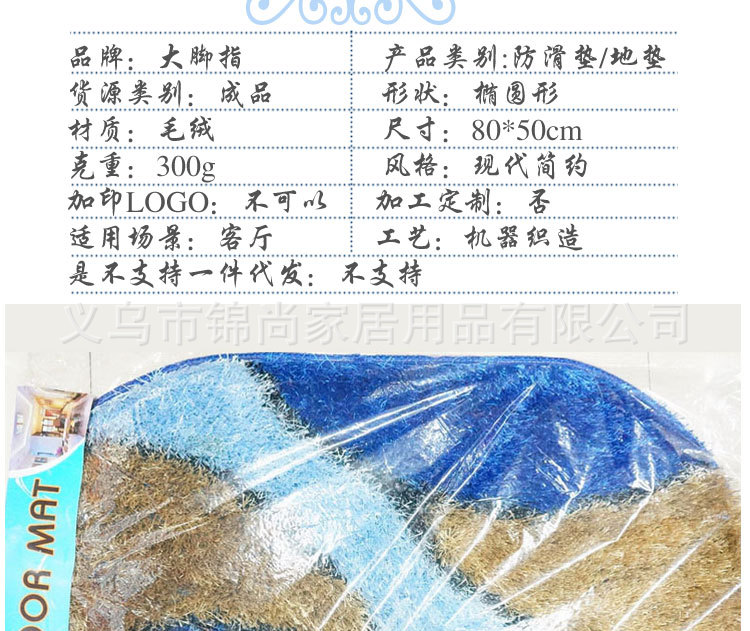 品牌：大脚指 产品类别:防滑垫/地垫
货源类别：成品 形状：椭圆形
材质：毛绒 尺寸：80*50cm
克重：300g 风格：现代简约
加印LOGO：不可以 加工定制：否
适用场景：客厅 工艺：机器织造
是不支持一件代发：不支持
义乌市锦尚家居用品有限公司
OOR MAT